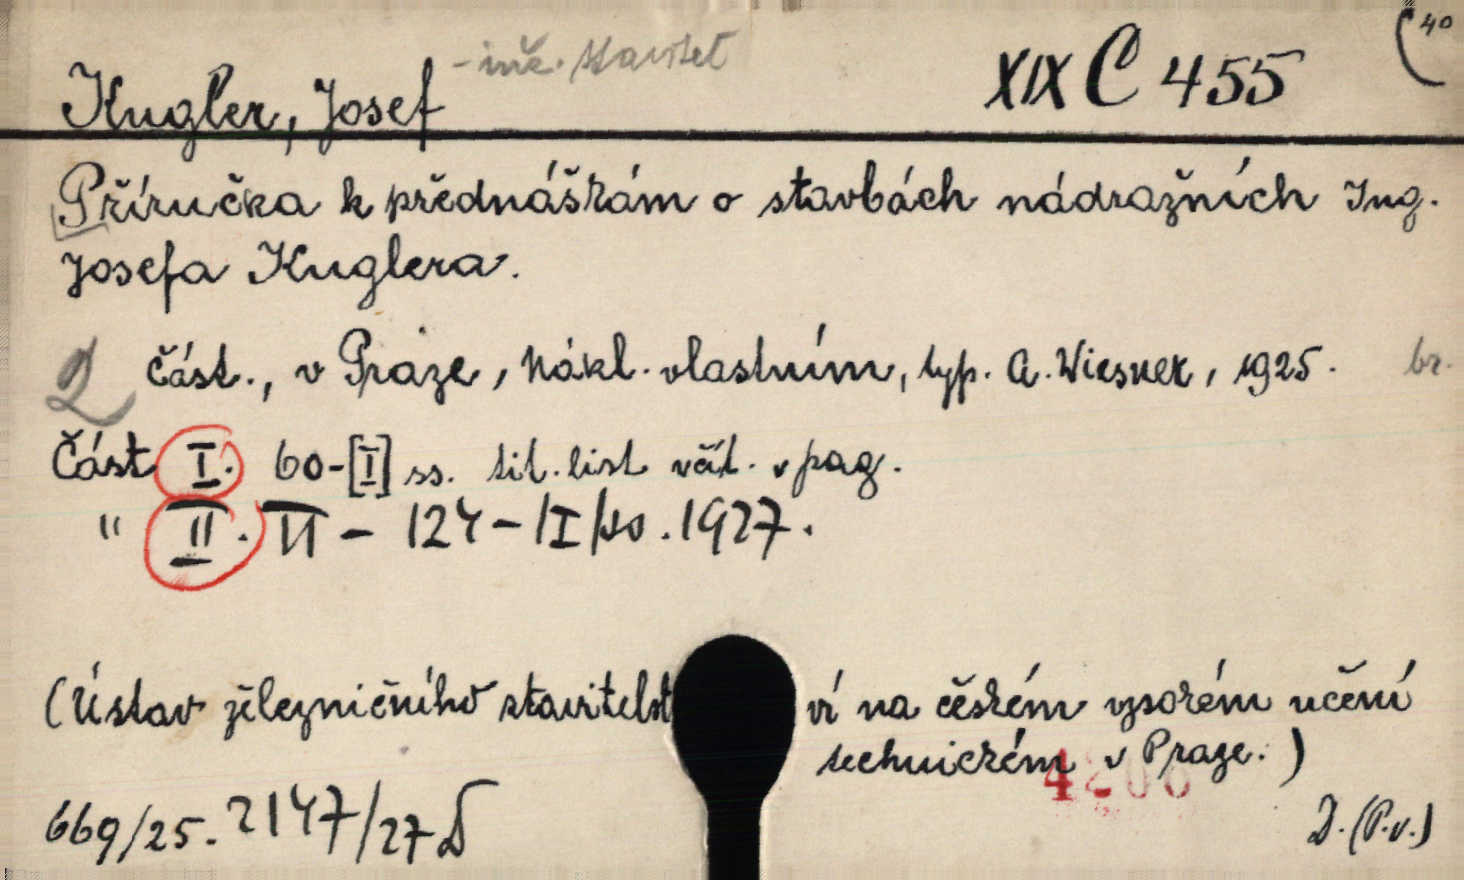 Kugler, Josef - inž. stavitel XIX C 455 40
Příručka k přednáškám o stavbách nádražních Ing.
Josefa Kuglera.
2 část., v Praze, nákl. vlastním, typ. A. Wiesner, 1925. br.
Část I. 60-[I] ss. tit. list včít. v pag.
" II. VI - 124 - |I| so. 1927.
(Ústav železničního stavitelství na českém vysokém učení
technickém v Praze.)
4206
669/25. 2147/27 D
D. (P.v.)